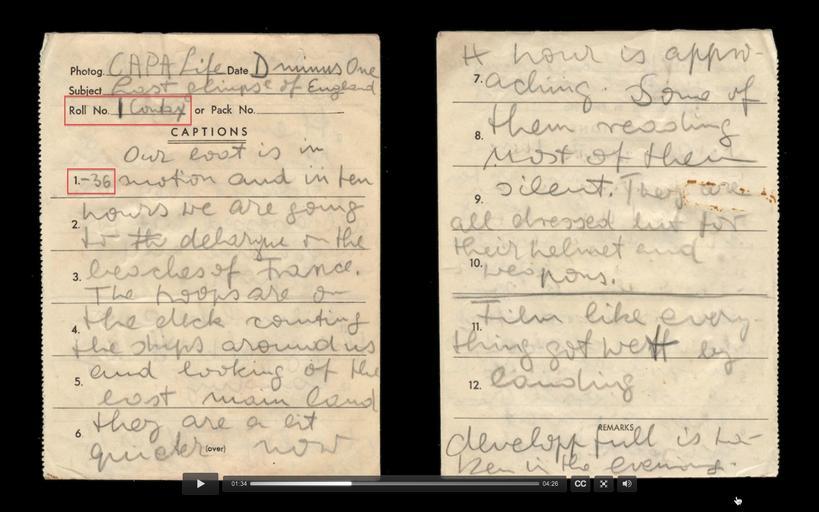 Photog. CAPA Life Date D minus One
Subject Last climpse of England
Roll No. 1 Contax or Pack No.
CAPTIONS
Our boat is in
1.-36 motion and in ten
hours we are going
2.
to the debarque on the
3. beaches of France.
The troops are on
4. the deck counting
the ships around us
and looking at the
5.
last main land
6 they are a bit
quieter (over) now
H hour is appro-
7. aching. Some of
8. them reading
most of them
9. silent. They are
all dressed but for
their helmet and
10. weapons.
Film like every-
11. thing got wett by
12. landing
REMARKS
developp full is ta-
ken in the evening.
01:34
04:26
CC